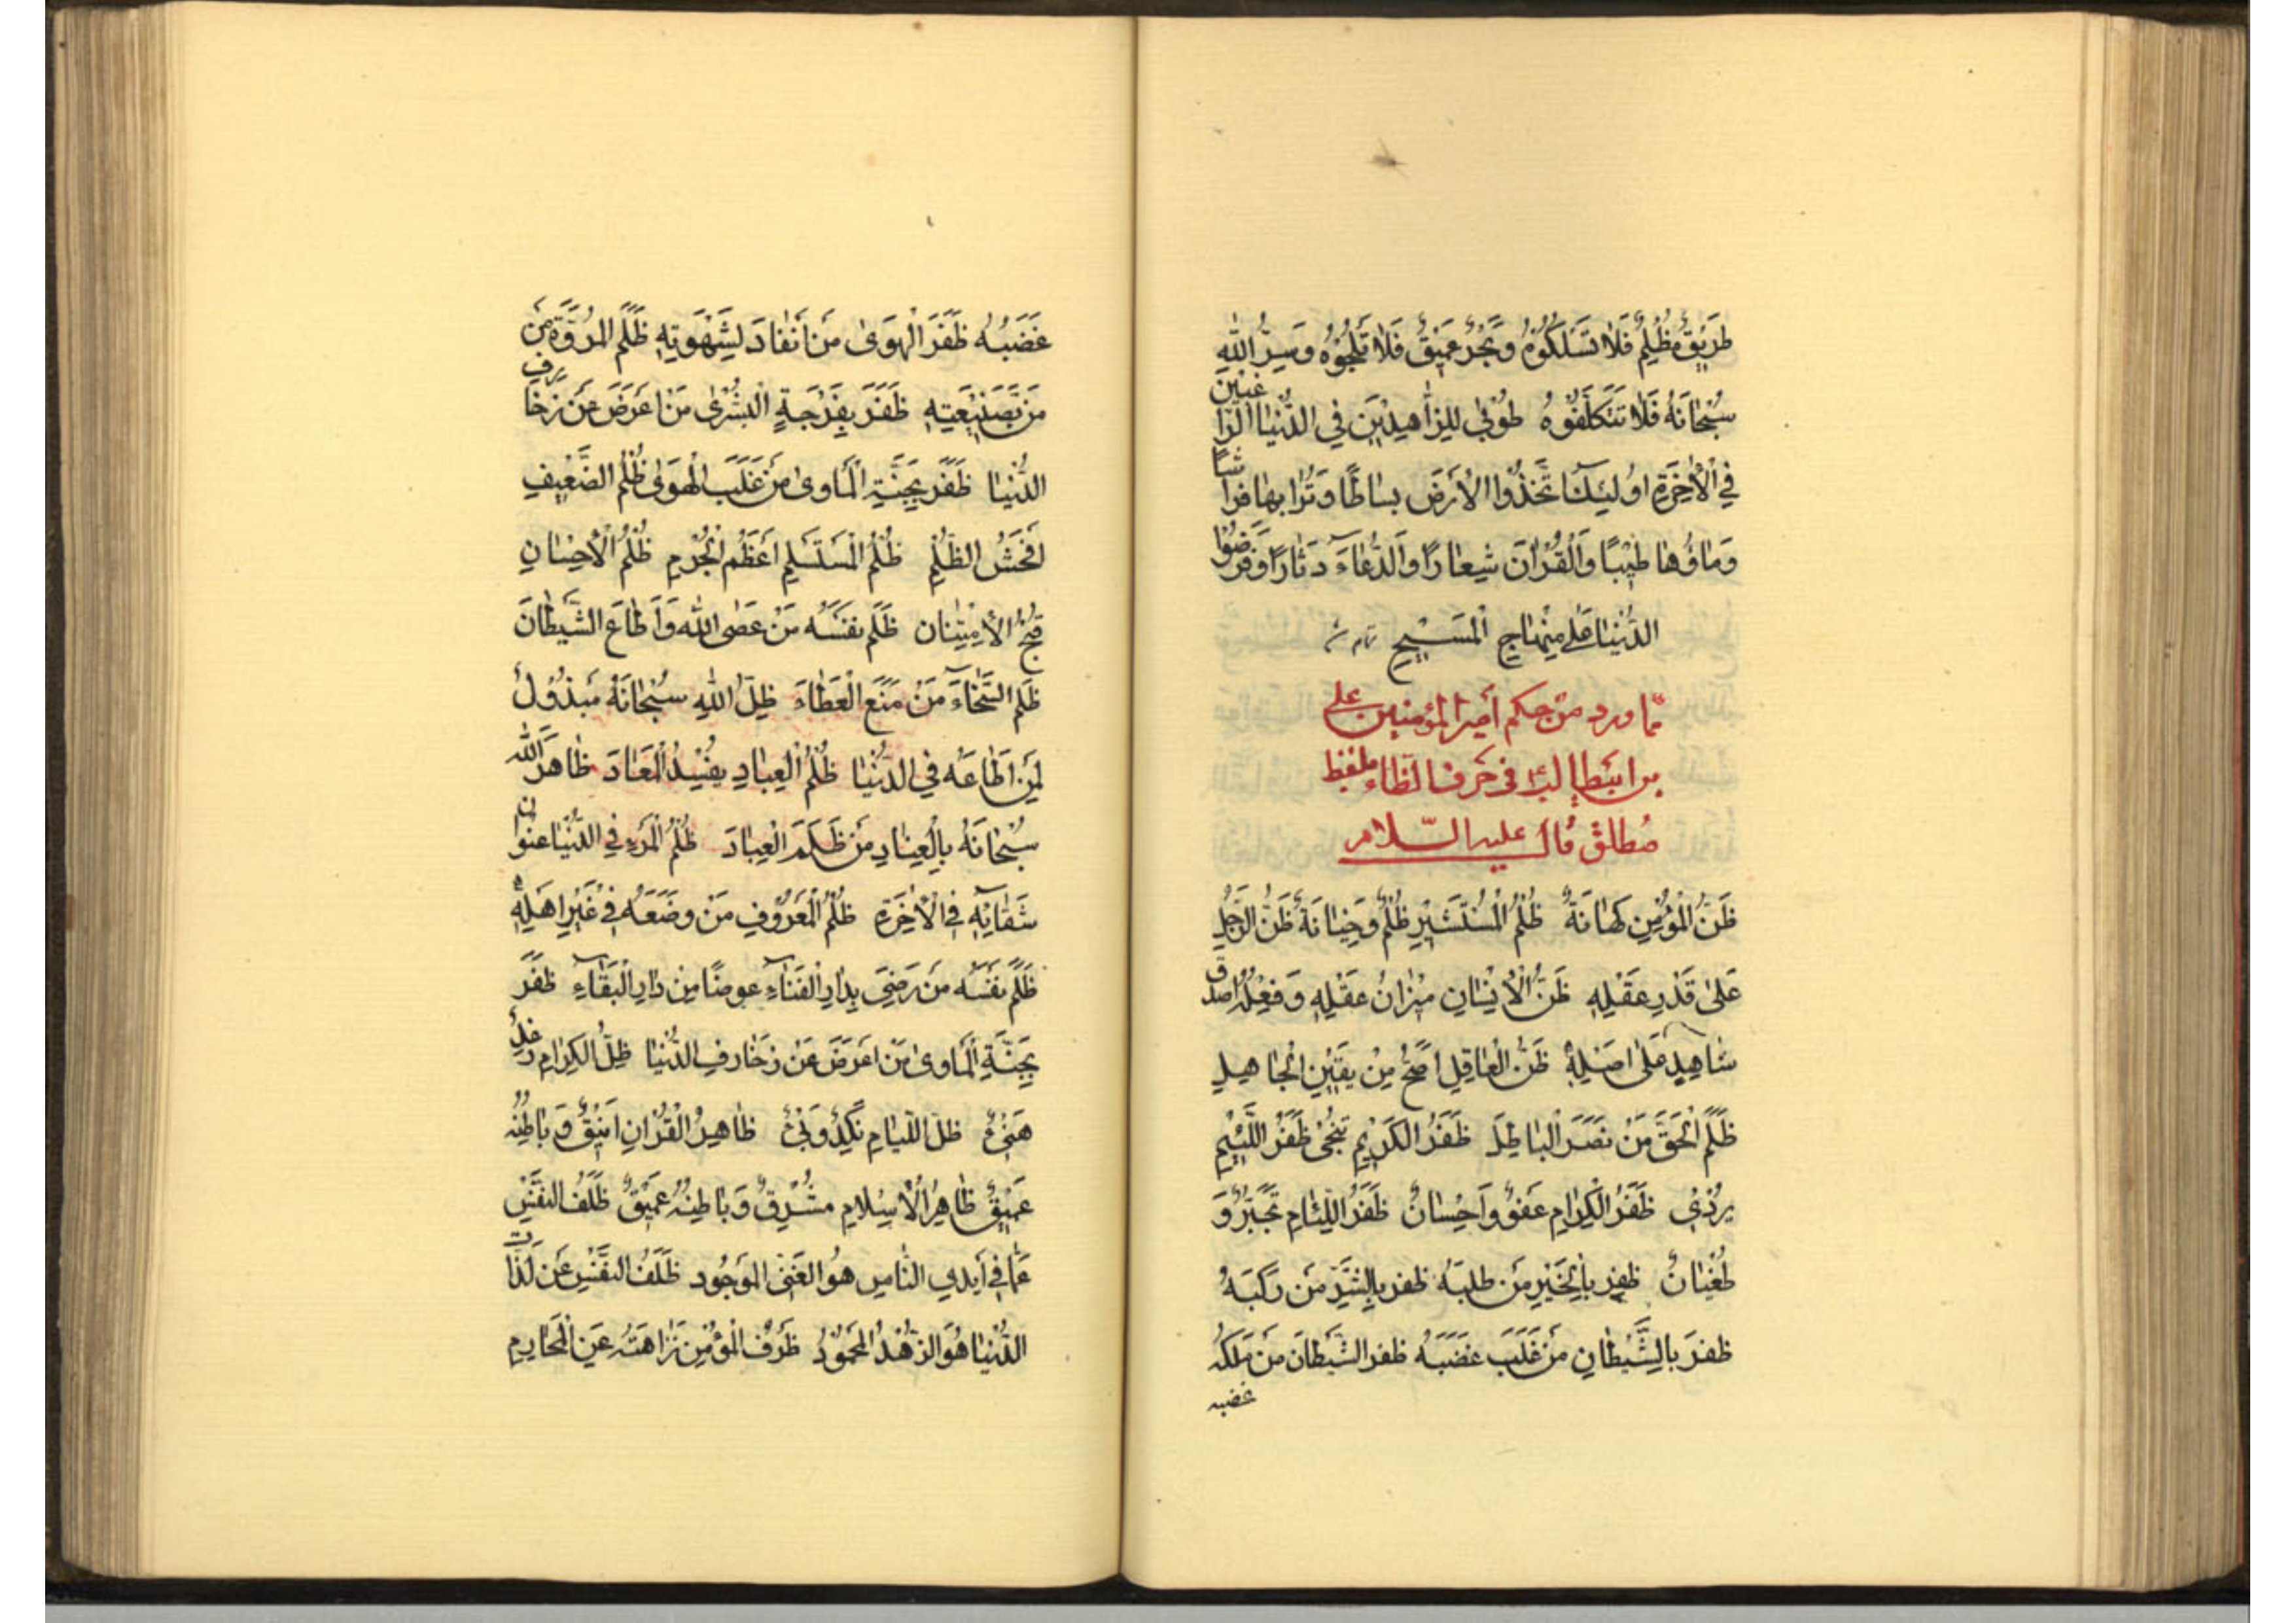 طَرِيقٌ مُظْلِمٌ فَلَا تَسْلُكُوهُ وَبَحْرٌ عَمِيقٌ فَلَا تَلِجُوهُ وَسِرُّ اللهِ
سُبْحَانَهُ فَلَا تَتَكَلَّفُوهُ طُوبٰى لِلزَّاهِدِينَ فِي الدُّنْيَا الرَّاغِبِينَ
فِي الْاٰخِرَةِ اُولٰئِكَ اتَّخَذُوا الْأَرْضَ بِسَاطًا وَتُرَابَهَا فِرَاشًا
وَمَاؤُهَا طِيْبًا وَالْقُرْاٰنَ شِعَارًا وَالدُّعَاءَ دِثَارًا وَقَرَضُوا
الدُّنْيَا عَلٰى مِنْهَاجِ الْمَسِيحِ
مّما ورد من حكم أمير المؤمنين علي
بن ابيطالب في حرف الظاء بلفظ
مُطلق قال عليه السّلام
ظَنُّ الْمُؤْمِنِ كَهَانَةٌ ظُلْمُ الْمُسْتَشِيرِ ظُلْمٌ وَخِيَانَةٌ ظَنُّ الرَّجُلِ
عَلٰى قَدْرِ عَقْلِهِ ظَنُّ الْإِنْسَانِ مِيْزَانُ عَقْلِهِ وَفِعْلُهُ اصدق
شَاهِدٍ عَلٰى اَصْلِهِ ظَنُّ الْعَاقِلِ اَصَحُّ مِنْ يَقِيْنِ الْجَاهِلِ
ظَلَمَ الْحَقَّ مَنْ نَصَرَ الْبَاطِلَ ظَفَرُ الْكَرِيْمِ يُنْجِي ظَفَرُ اللَّئِيْمِ
يُرْدِي ظَفَرُ الْكِرَامِ عَفْوٌ وَاَحْسَانٌ ظَفَرُ اللِّئَامِ تَجَبُّرٌ وَ
طُغْيَانٌ ظَفِرَ بِالْخَيْرِ مَنْ طَلَبَهُ ظفر بِالشَّرِّ مَنْ رَكِبَهُ
ظفرَ بالِشَّيْطَانِ مَنْ غَلَبَ غَضَبَهُ ظفر الشَّيْطَانُ مَنْ مَلَكَهُ
غضبه
غَضَبُهُ ظَفَرَ الْهَوٰى مَنْ اَنْقَادَ لِشَهْوَتِهِ ظَلَمَ الْمُرُوَّةَ مَنْ
مَنَّ بِصَنِيْعَتِهِ ظَفَرَ بِفَرْجَةِ الْبُشْرٰى مَنْ اعَرَضَ عَنْ زَخَارِفِ
الدُّنْيَا ظَفَرَ بِجَنَّةِ الْمَأْوٰى مَنْ غَلَبَ الْهَوٰى ظُلْمُ الضَّعِيفِ
اَفْحَشُ الظُّلْمِ ظُلْمُ الْمُسْتَسْلِمِ اَعْظَمُ الْجُرْمِ ظُلْمُ الْاِحْسَانِ
قُبْحُ الْاِمْتِنَانِ ظَلَمَ نفَسَهُ مَنْ عَصَى اللهَ وَاَطَاعَ الشَّيْطَانَ
ظَلَمَ السَّخَاءَ مَنْ مَنَعَ الْعَطَاءَ ظِلُّ اللهِ سُبْحَانَهُ مَبْذُولٌ
لِمَنْ اَطَاعَهُ فِي الدُّنْيَا ظُلْمُ الْعِبَادِ يُفْسِدُ الْمَعَادَ ظَاهَرَ اللهَ
سُبْحَانَهُ بِالْعِنَادِ مَنْ ظَلَمَ الْعِبَادَ ظُلْمُ الْمَرْءِ فِي الدُّنْيَا عُنْوَانُ
شَقَائِهِ فِي الْاٰخِرَةِ ظَلَمَ الْمَعْرُوفَ مَنْ وَضَعَهُ فِي غَيْرِ اَهْلِهِ
ظَلَمَ نَفْسَهُ مَنْ رَضِيَ بِدَارِ الْفَنَاءِ عوضًا مِنْ دَارِ الْبَقَاءِ ظفَرَ
بِجَنَّةِ الْمَأْوٰى مَنْ اَعْرَضَ عَنْ زَخَارِفِ الدُّنْيَا ظِلُّ الكِرَامِ رَغِدٌ
هَنِيٌّ ظلّ اللِّيَامِ نَكِدٌ وَبِيٌ ظَاهِرُ الْقُرْاٰنِ اَنِيْقٌ وَبَاطِنُهُ
عَمِيْقٌ ظَاهِرُ الْاِسْلَامِ مُشْرِقٌ وَبَاطِنُهُ عَمِيْقٌ ظَلَفُ النَّفْسِ
عَمَّا فِي أَيْدِي النَّاسِ هُوَ الْغِنَى الْمَوْجُود ظَلَفُ النَّفْسِ عَنْ لَذَّاتِ
الدُّنْيَا هُوَ الزُّهْدُ الْمَحْمُودُ ظَرْفُ الْمُؤْمِنِ نَزَاهَتُهُ عَنِ الْمَحَارِمِ